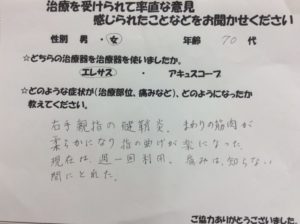 治療を受けられて率直な意見
感じられたことなどをお聞かせください
性別 男・女 年齢 70 代
☆どちらの治療器を治療器を使いましたか。
エレサス ・ アキュスコープ
☆どのような症状が(治療部位、痛みなど)、どのようになったか
教えてください。
右手親指の腱鞘炎、まわりの筋肉が
柔らかになり指の曲げが楽になった
現在は、週一回利用、痛みは、知らない
間にとれた。
ご協力ありがとうございました。